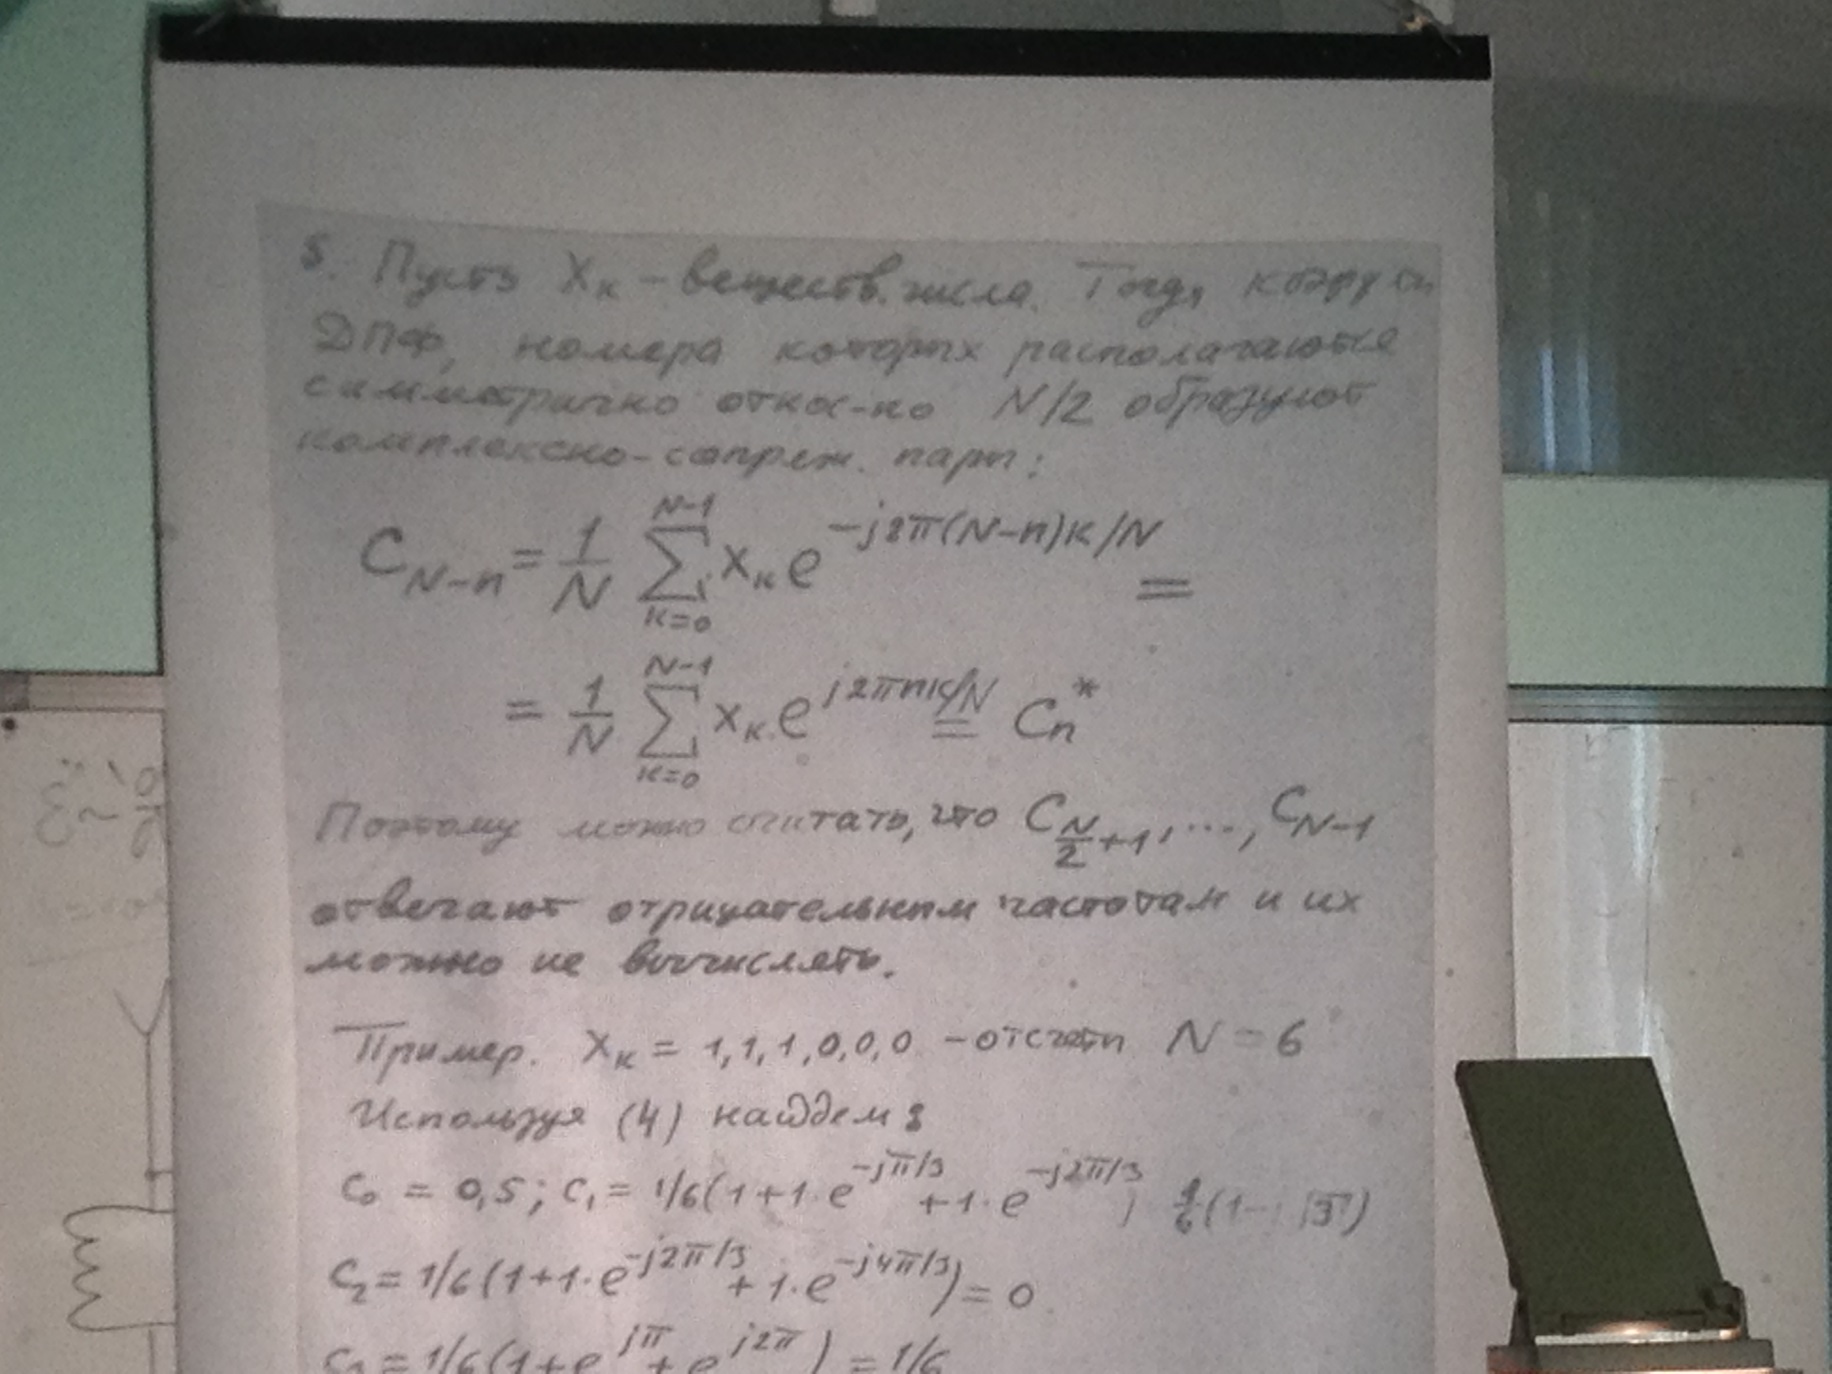 5. Пусть Xк – веществ. числа. Тогда коэфф-ты
ДПФ, номера которых располагаются
симметрично относ-но N/2 образуют
комплексно-сопряж. пары:
C_{N-n} = 1/N ∑_{к=0}^{N-1} Xк e^{-j2π(N-n)к/N} =
= 1/N ∑_{к=0}^{N-1} Xк e^{j2πnк/N} = Cn*
Поэтому можно считать, что C_{N/2+1}, ..., C_{N-1}
отвечают отрицательным частотам и их
можно не вычислять.
Пример. Xк = 1,1,1,0,0,0 – отсчеты N = 6
Используя (4) найдем:
C0 = 0,5; C1 = 1/6(1+1·e^{-jπ/3} +1·e^{-j2π/3})
C2 = 1/6(1+1·e^{-j2π/3} +1·e^{-j4π/3}) = 0
C3 = 1/6(1+e^{jπ} + e^{j2π}) = 1/6